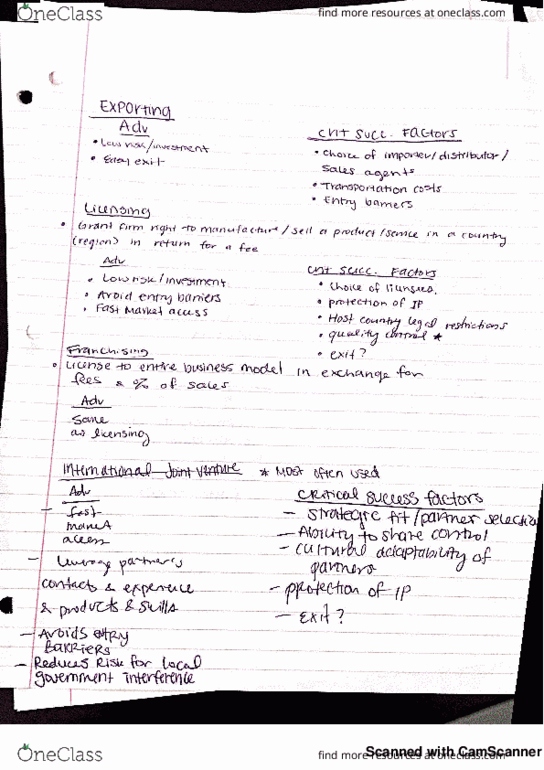 OneClass
find more resources at oneclass.com
Exporting
Adv
• Low risk/investment
• Easy exit
Crit Succ. Factors
• Choice of importer/distributor/
Sales agents
• Transportation costs
• Entry barriers
Licensing
• Grant firm right to manufacture/sell a product/service in a country
(region) in return for a fee
Adv
• Low risk/investment
• Avoid entry barriers
• Fast Market access
Crit succ. Factors
• Choice of licensee.
• protection of IP
• Host country legal restrictions
• quality control *
• exit?
Franchising
• License to entire business model in exchange for
fees & % of sales
Adv
Same
as licensing
International Joint Venture * Most often used
Adv
- fast
market
access
- Leverage partner's
contacts & experience
& products & skills
- Avoids entry
Barriers
- Reduces Risk for local
government interference
Critical success factors
- strategic fit/partner selection
- Ability to share control
- cultural adaptability of
partners
- protection of IP
- Exit?
OneClass
find more resources at oneclass.com
Scanned with CamScanner